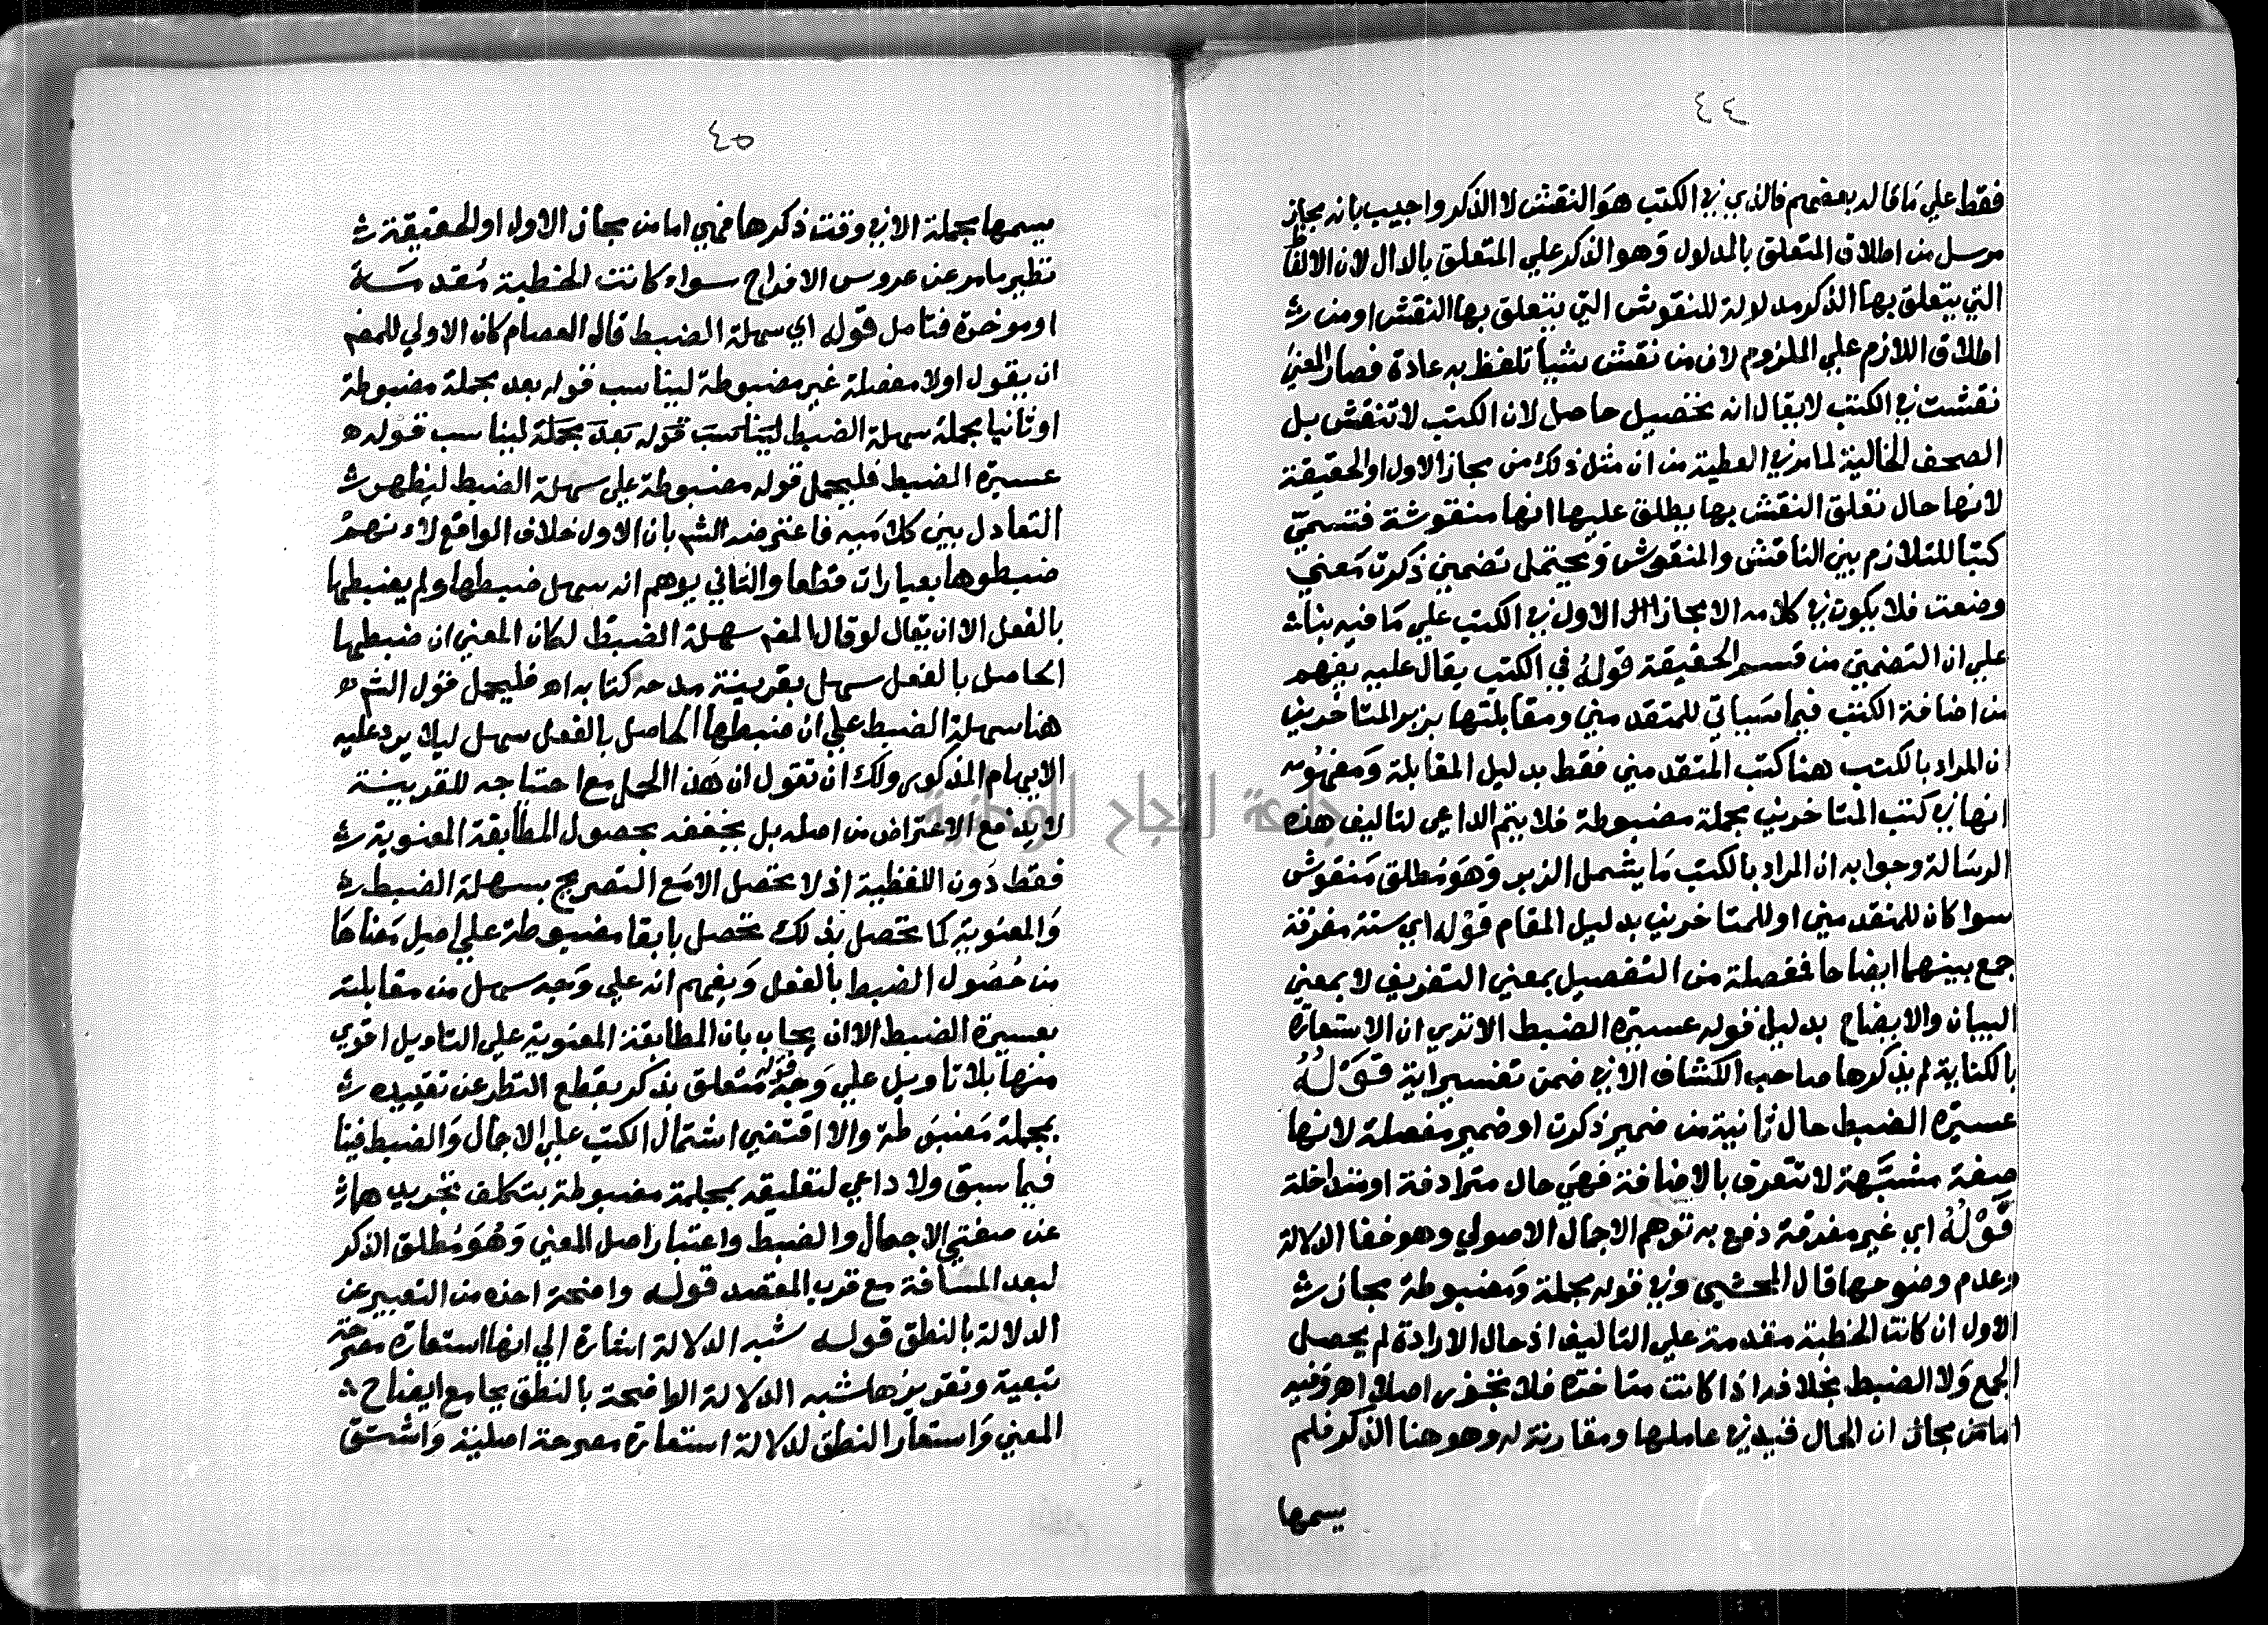 ٤٤
فقط علي ما قاله بعضهم فالذي في الكتب هو النقش لا الذكر واجيب بانه مجاز
مرسل من اطلاق المتعلق بالمدلول وهو الذكر علي المتعلق بالدال لان الالفاظ
التي يتعلق بها الذكر مدلولة للنقوش التي يتعلق بها النقش او من
اطلاق اللازم علي الملزوم لان من نقش شيأ تلفظ به عادة فصار المعني
نقشت في الكتب لا يقال انه تحصيل حاصل لان الكتب لا تنقش بل
الصحف الخالية لما مر في العطية من ان مثل ذلك من مجاز الاول او الحقيقة
لانها حال تعلق النقش بها يطلق عليها انها منقوشة فتسمي
كتبا للتلازم بين الناقش والمنقوش ويحتمل تضمين ذكرت معني
وضعت فلا يكون في كلامه الا مجاز الاول في الكتب علي ما فيه بناء
علي ان التضمين من قسم الحقيقة قوله في الكتب يقال عليه يفهم
من اضافة الكتب فيما سياتي للمتقدمين ومقابلتها بزبر المتاخرين
ان المراد بالكتب هنا كتب المتقدمين فقط بدليل المقابلة ومفهومه
انها في كتب المتاخرين مجملة مضبوطة فلا يتم الداعي لتاليف هذه
الرسالة وجوابه ان المراد بالكتب ما يشمل الزبر وهو مطلق منقوش
سوا كان للمتقدمين او للمتاخرين بدليل المقام قوله اي ستة مفرقة
جمع بينهما ايضاحا فمفصلة من التفصيل بمعني التفريق لا بمعني
البيان والايضاح بدليل قوله عسيرة الضبط الا تري ان الاستعارة
بالكناية لم يذكرها صاحب الكشاف الا في ضمن تفسير اية قوله
عسيرة الضبط حال ثانية من ضمير ذكرت او ضمير مفصلة لانها
صفة مشبهة لا تتعرف بالاضافة فهي حال مترادفة او متداخلة
قوله اي غير مفرقة دفع به توهم الاجمال الاصولي وهو خفا الدلالة
وعدم وضوحها قال المحشي وفي قوله مجملة ومضبوطة مجاز
الاول ان كانت الخطبة متقدمة علي التاليف اذ حال الارادة لم يحصل
الجمع ولا الضبط بخلافه اذا كانت متاخرة فلا تجوز اصلا اهـ وفيه
انا من مجاز ان الحال قيد في عاملها ومقارنة له وهو هنا الذكر فلم
يسمها
٤٥
يسمها مجملة الا في وقت ذكرها فهي اما من مجاز الاول او الحقيقة
نظير ما مر عن عروس الافراح سواء كانت الخطبة مقدمة
او موخرة فتامل قوله اي سهلة الضبط قال العصام كان الاولي للمص
ان يقول اولا مفصلة غير مضبوطة ليناسب قوله بعد مجملة مضبوطة
او ثانيا مجملة سهلة الضبط ليناسب قوله بعد مجملة ليناسب قوله
عسيرة الضبط فليحمل قوله مضبوطة علي سهلة الضبط ليظهر
التعادل بين كلاميه فاعترضه الش بان الاول خلاف الواقع لانهم
ضبطوها بعبارات قطعا والثاني يوهم انه سهل ضبطها ولم يضبطها
بالفعل الا ان يقال لو قال المص سهلة الضبط لكان المعني ان ضبطها
الحاصل بالفعل سهل بقرينة مدحه كتابه اهـ فليحمل قول الش
هنا سهلة الضبط علي ان ضبطها الحاصل بالفعل سهل ليلا يرد عليه
الايهام المذكور ولك ان تقول ان هذا الحمل مع احتياجه للقرينة
لا يدفع الاعتراض من اصله بل يخففه بحصول المطابقة المعنوية
فقط دون اللفظية اذ لا تحصل الا مع التصريح بسهلة الضبط
والمعنوية كما تحصل بذلك تحصل بابقا مضبوطة علي اصل معناها
من حصول الضبط بالفعل ويفهم انه علي وجه سهل من مقابلته
بعسيرة الضبط الا ان يجاب بان المطابقة المعنوية علي التاويل اقوي
منها بلا تاويل علي وجه قوله متعلق بذكر بقطع النظر عن تقييده
بمجملة مضبوطة والا اقتضي اشتمال الكتب علي الاجمال والضبط فينا
فيما سبق ولا داعي لتعليقه بمجملة مضبوطة بتكلف تجريدهما
عن صفتي الاجمال والضبط واعتبار اصل المعني وهو مطلق الذكر
لبعد المسافة مع قرب المقصد قوله واضحة اخذه من التعبير عن
الدلالة بالنطق قوله شبه الدلالة اشارة الي انها استعارة مصرحة
تبعية وتقريرها شبه الدلالة الواضحة بالنطق بجامع ايضاح
المعني واستعار النطق للدلالة استعارة مصرحة اصلية واشتق